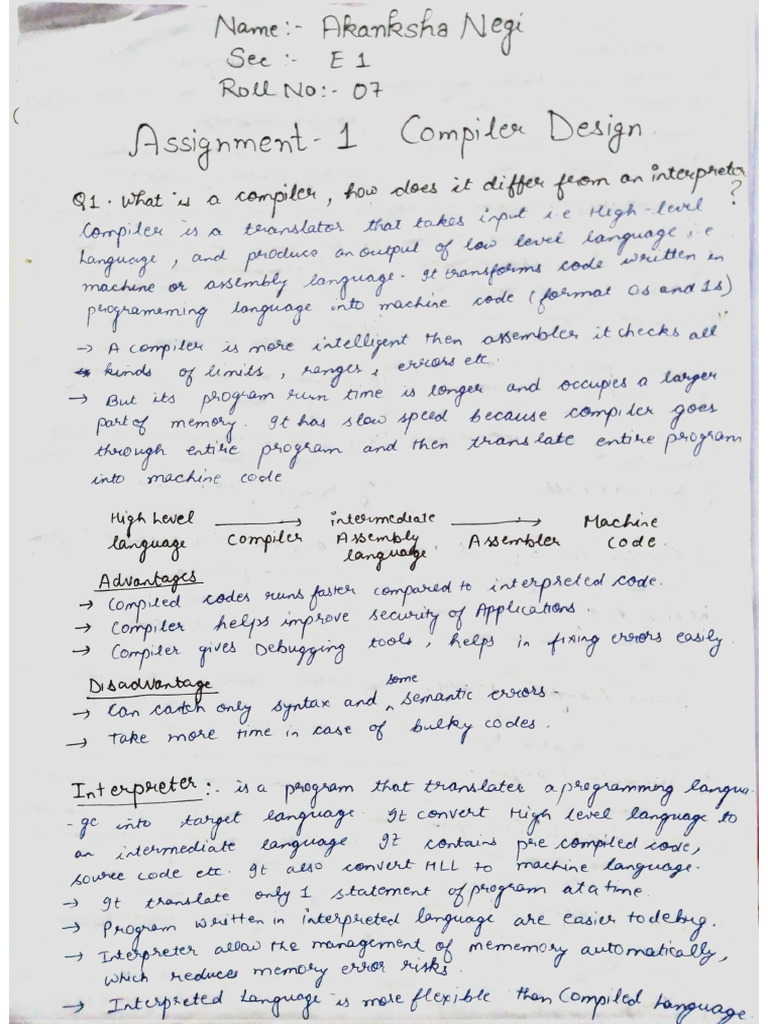 Name:- Akanksha Negi
Sec :- E 1
Roll No:- 07
Assignment- 1 Compiler Design
Q1. What is a compiler, how does it differ from an interpreter
?
Compiler is a translator that takes input i.e High-level
Language, and produce an output of low level language, i.e
machine or assembly language. It transforms code written in
programeming language into machine code (format 0s and 1s)
→ A compiler is more intelligent then assembler it checks all
kinds of limits, ranges, errors etc.
→ But its program run time is longer and occupies a larger
part of memory. It has slow speed because compiler goes
through entire program and then translate entire program
into machine code
High Level → intermediate → Machine
language Compiler Assembly Assembler Code.
language
Advantages
→ Compiled codes runs faster compared to interpreted code.
→ Compiler helps improve security of Applications.
→ Compiler gives Debugging tools, helps in fixing errors easily
Disadvantage
some
→ Can catch only syntax and ^ semantic errors-
→ Take more time in case of bulky codes.
Interpreter:- is a program that translates a programming langua-
-ge into target language. It convert High level language to
an intermediate language. It contains pre compiled code,
source code etc. It also convert HLL to machine language.
→ It translate only 1 statement of program at a time.
→ Program written in interpreted language are easier to debug.
→ Interpreter allow the management of mememory automatically,
which reduces memory error risks.
→ Interpreted Language is more flexible than Compiled Language.